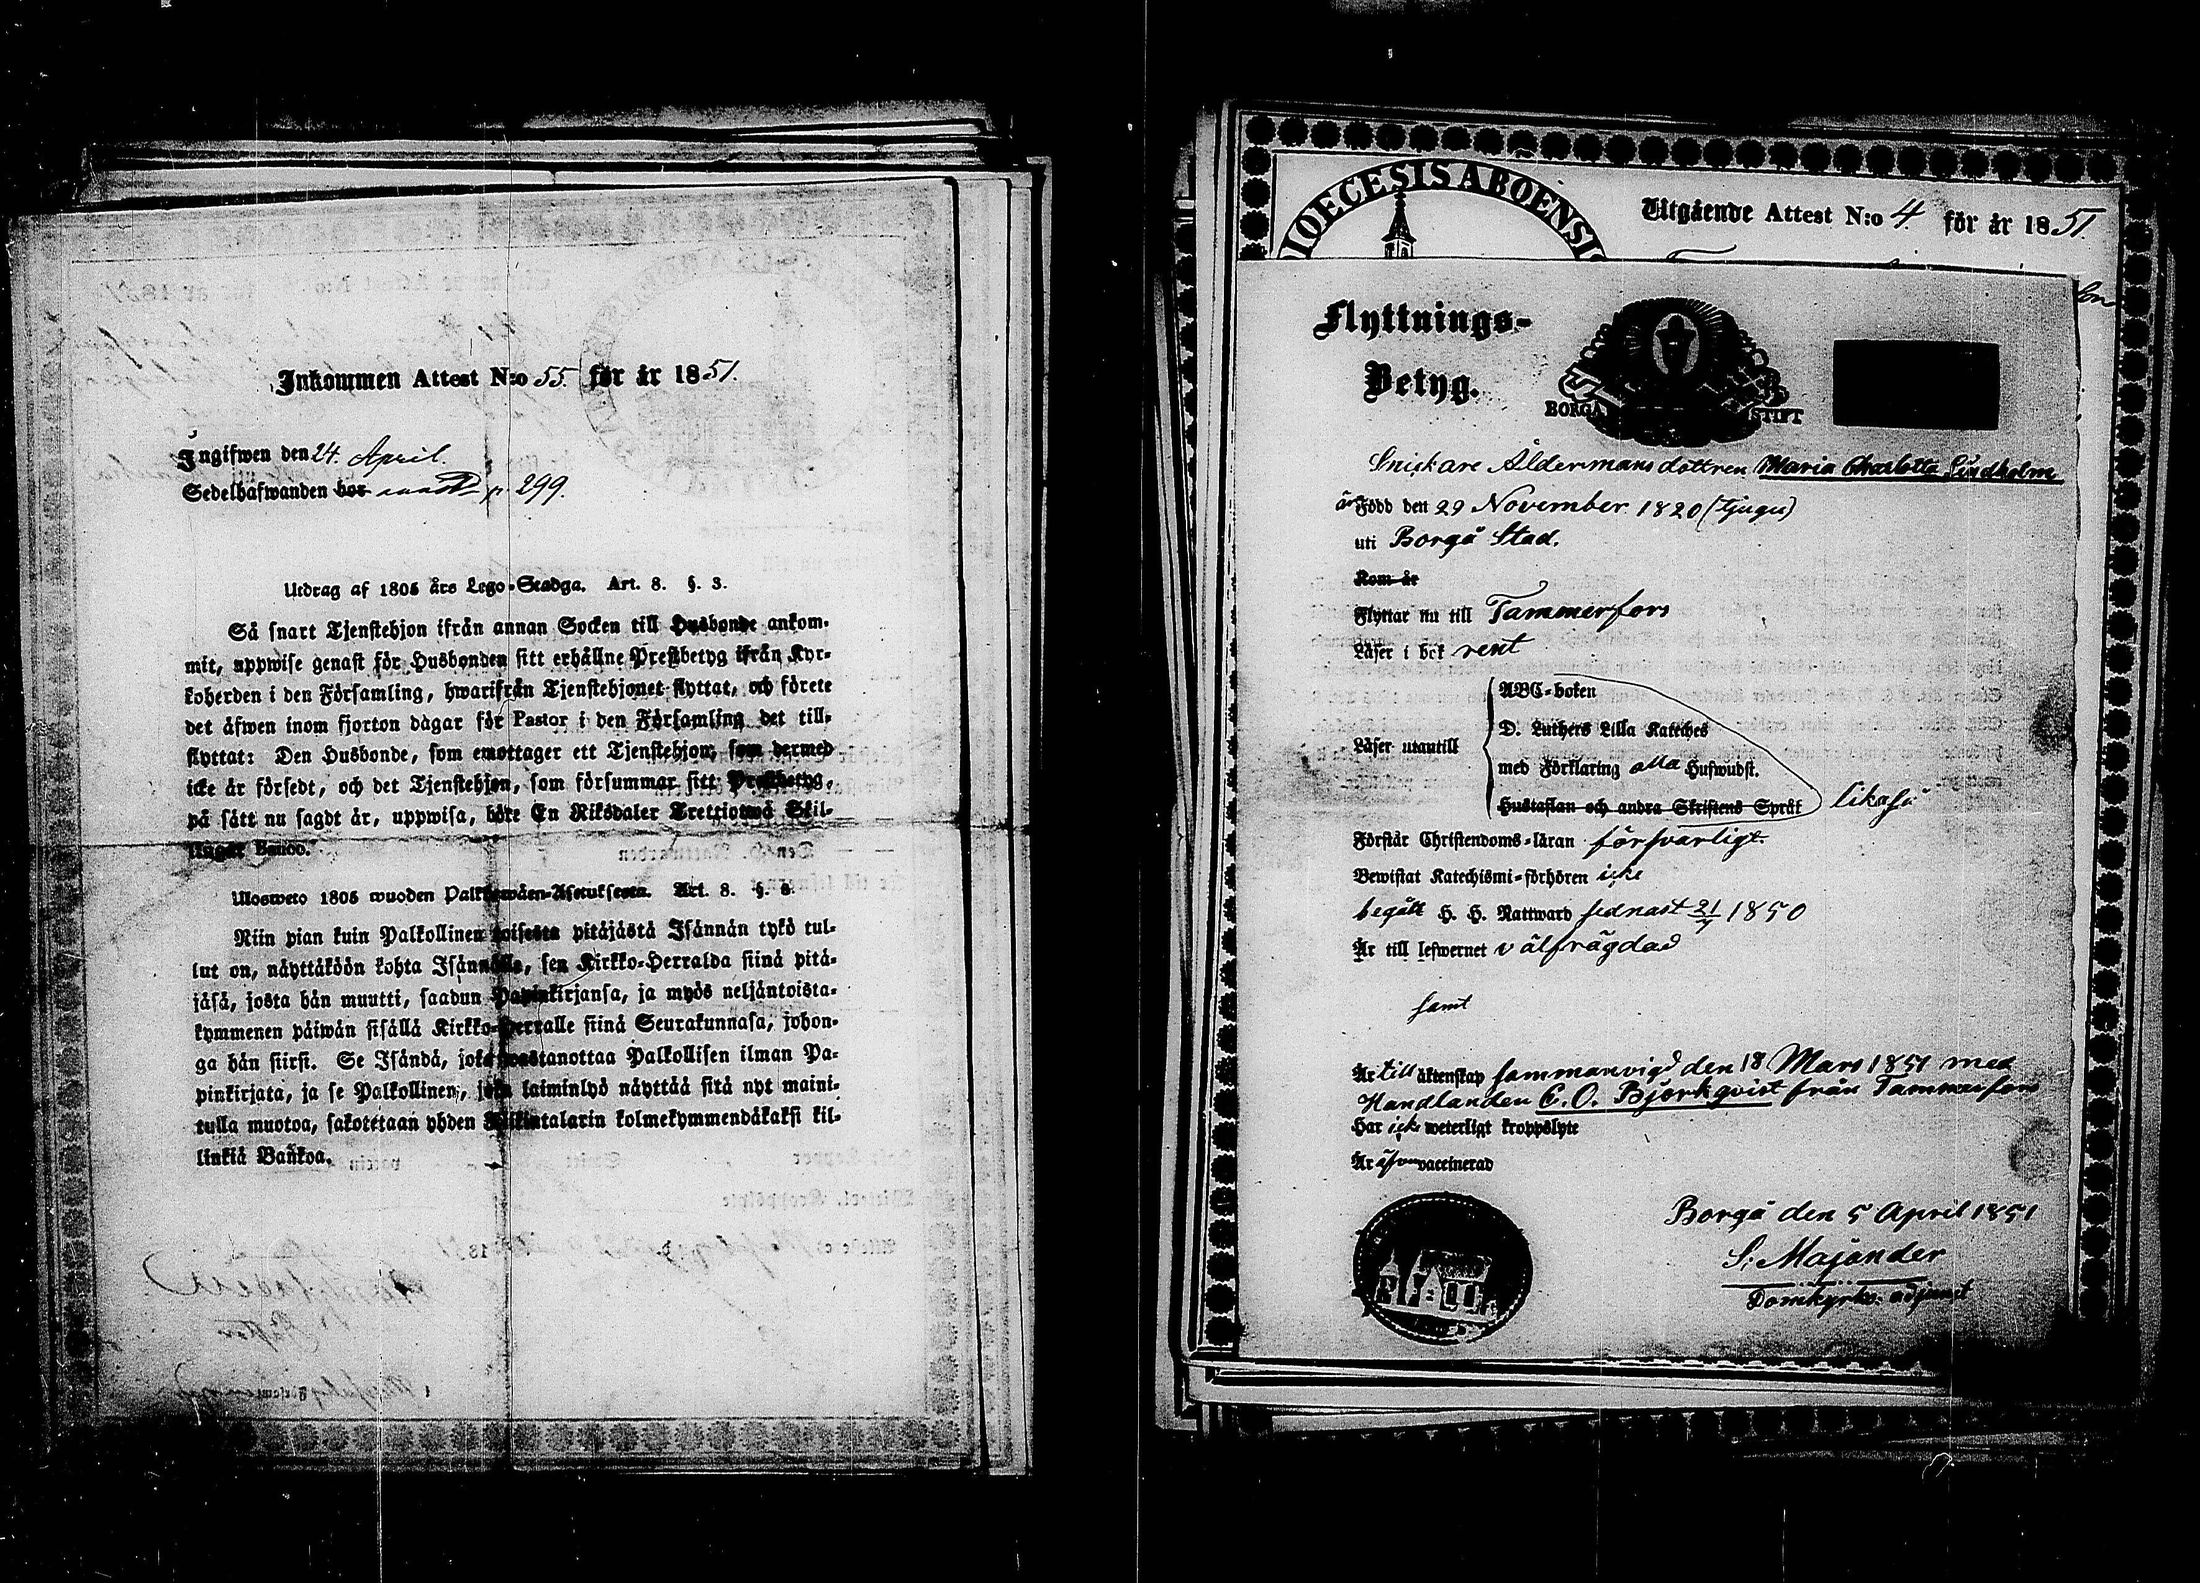 Inkommen Attest N:o 55. för år 1851.
Ingifwen den 24 April.
Sedelhafwanden bor p. 299.
Utdrag af 1805 års Lego-Stadga. Art. 8. §. 3.
Så snart Tjenstehjon ifrån annan Socken till Husbonde ankom-
mit, uppwise genast för Husbonden sitt erhållne Prestbetyg ifrån Kyr-
koherden i den Församling, hwarifrån Tjenstehjonet flyttat, och förete
det äfwen inom fjorton dagar för Pastor i den Församling det till-
flyttat: Den Husbonde, som emottager ett Tjenstehjon, som dermed
icke är försedt, och det Tjenstehjon, som försummar sitt Prestbetyg,
på sätt nu sagdt är, uppwisa, böte En Riksdaler Trettiotwå Skil-
lingar Banco.
Ulosweto 1805 wuoden Palkkawäen-Asetuksesta. Art. 8. §. 3.
Niin pian kuin Palkollinen toisesta pitäjästä Isännän tykö tul-
lut on, näyttäköön kohta Isännälle, sen Kirkko-Herralda siinä pitä-
jäsä, josta hän muutti, saadun Papinkirjansa, ja myös neljäntoista-
kymmenen päiwän sisällä Kirkko-Herralle siinä Seurakunnasa, johon-
ga hän siirsi. Se Isändä, joka wastanottaa Palkollisen ilman Pa-
pinkirjata, ja se Palkollinen, joka laiminlyö näyttää sitä nyt maini-
tulla muotoa, sakotetaan yhden Riikintalarin kolmekymmendäkaksi kil-
linkiä Bankoa.
DIOECESIS ABOENSIS
Utgående Attest N:o 4. för år 1851.
Flyttnings-
Betyg.
BORGÅ STIFT
Snickare Åldermans dottren Maria Charlotta Lindholm
är Född den 29 November 1820 (tjugu)
uti Borgå Stad.
Kom år
Flyttar nu till Tammerfors
Läser i bok rent
ABC-boken
D. Luthers Lilla Kateches
Läser utantill
med Förklaring alla Hufwudst.
Hustaflan och andra Skriftens Språk likaså
Förstår Christendoms-läran försvarligt.
Bewistat Katechismi-förhören icke
begått H. H. Nattward sednast 21/7 1850
Är till lefwernet välfrägdad
samt
Är till äktenskap sammanvigd den 18 Mars 1851 med
Handlanden C. O. Björkqvist från Tammerfors
Har icke weterligt kroppslyte
Är äfven vaccinerad
Borgå den 5 April 1851
S: Majander
Domkyrko: adjunct